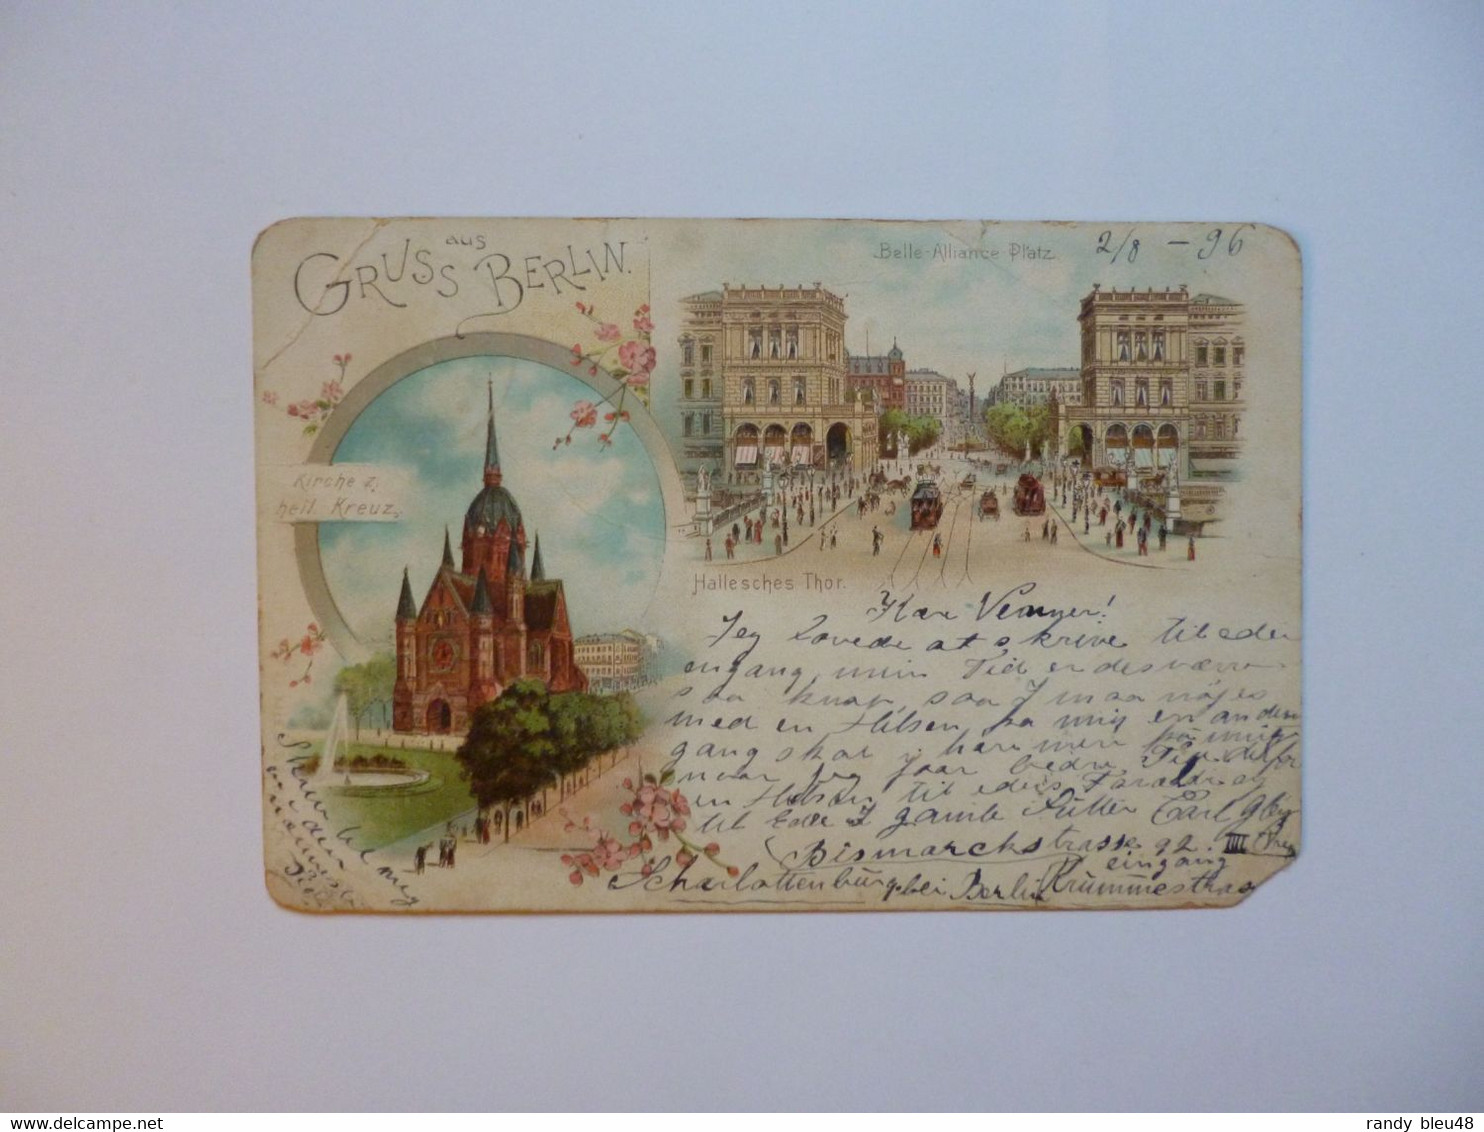 GRUSS aus BERLIN.
Belle-Alliance Platz
2/8 - 96
Kirche z.
heil. Kreuz.
Hallesches Thor.
Kære Venner!
Jeg lovede at skrive til eder
engang, min Tid er desværre
saa knap, saa maa nøjes
med en Hilsen fra mig en anden
gang skal I høre mere fra mig
naar jeg faar bedre Tid.
en Hilsen til eders Forældre og
til Eder I gamle Carl
Bismarckstrasse 92. III
eingang
Scharlottenburg bei Berlin Krummestras
Skriv mig
i den
nærmeste
Tid
randy_bleu48